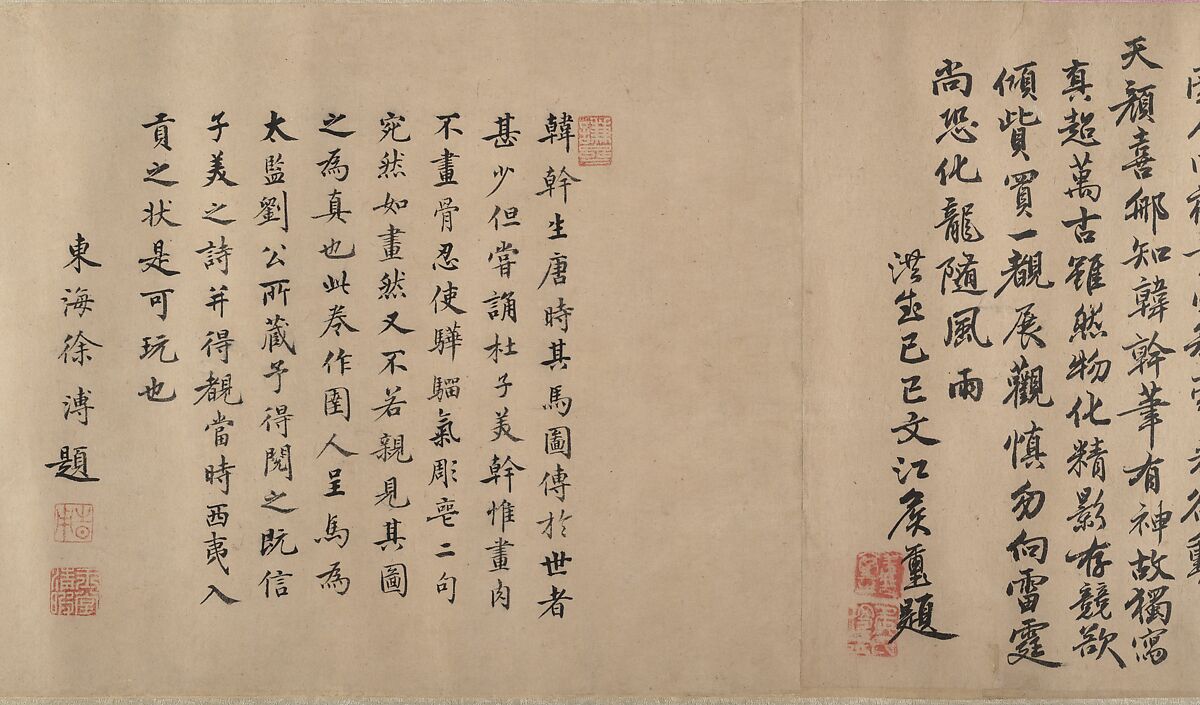 天顔喜那知韓幹筆有神故獨寫
真超萬古雖然物化精影存競欲
傾貲買一覩展觀慎勿向雷霆
尚恐化龍隨風雨
洪武己巳文江矦重題
韓幹生唐時其馬圖傳於世者
甚少但嘗誦杜子美幹惟畫肉
不畫骨忍使驊騮氣彫喪二句
宛然如畫然又不若親見其圖
之為真也此卷作圉人呈馬為
太監劉公所蔵予得閱之既信
子美之詩并得覩當時西夷入
貢之状是可玩也
東海徐溥題